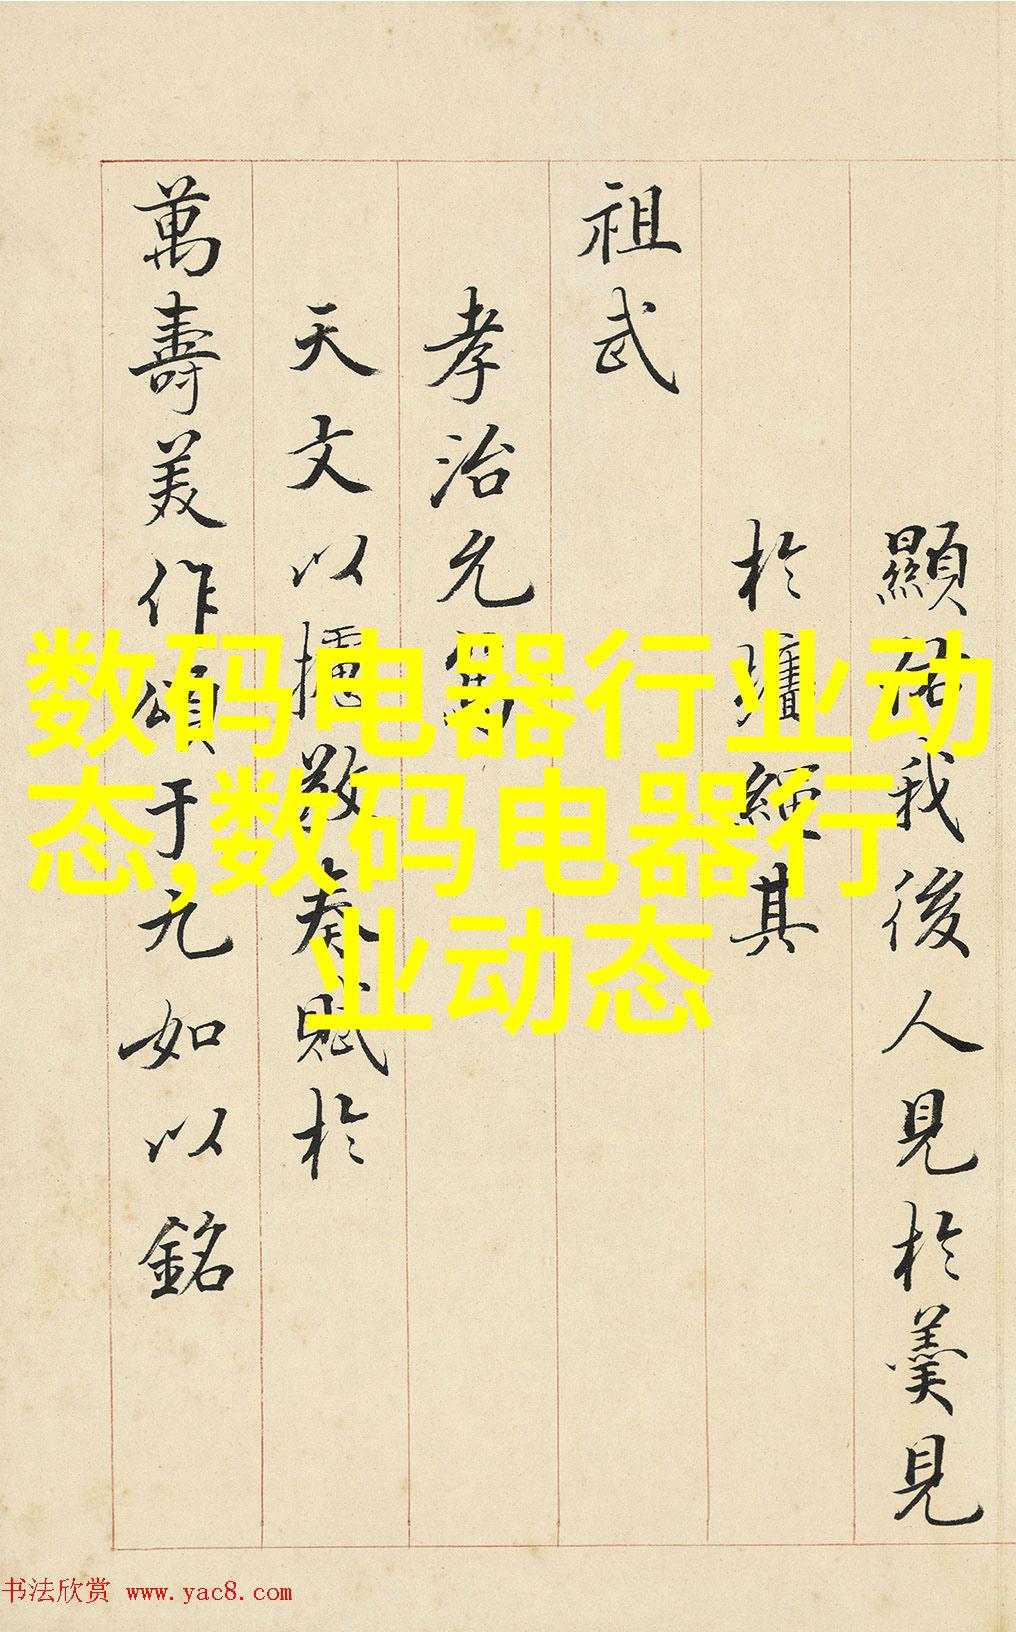 顯
我後人見於羹見
於
其
祖武
孝治允
天文以攄
奏賦於
萬壽美作頌于九如以銘
数码电器行业动
态,数码电器行
业动态
书法欣赏 www.yac8.com